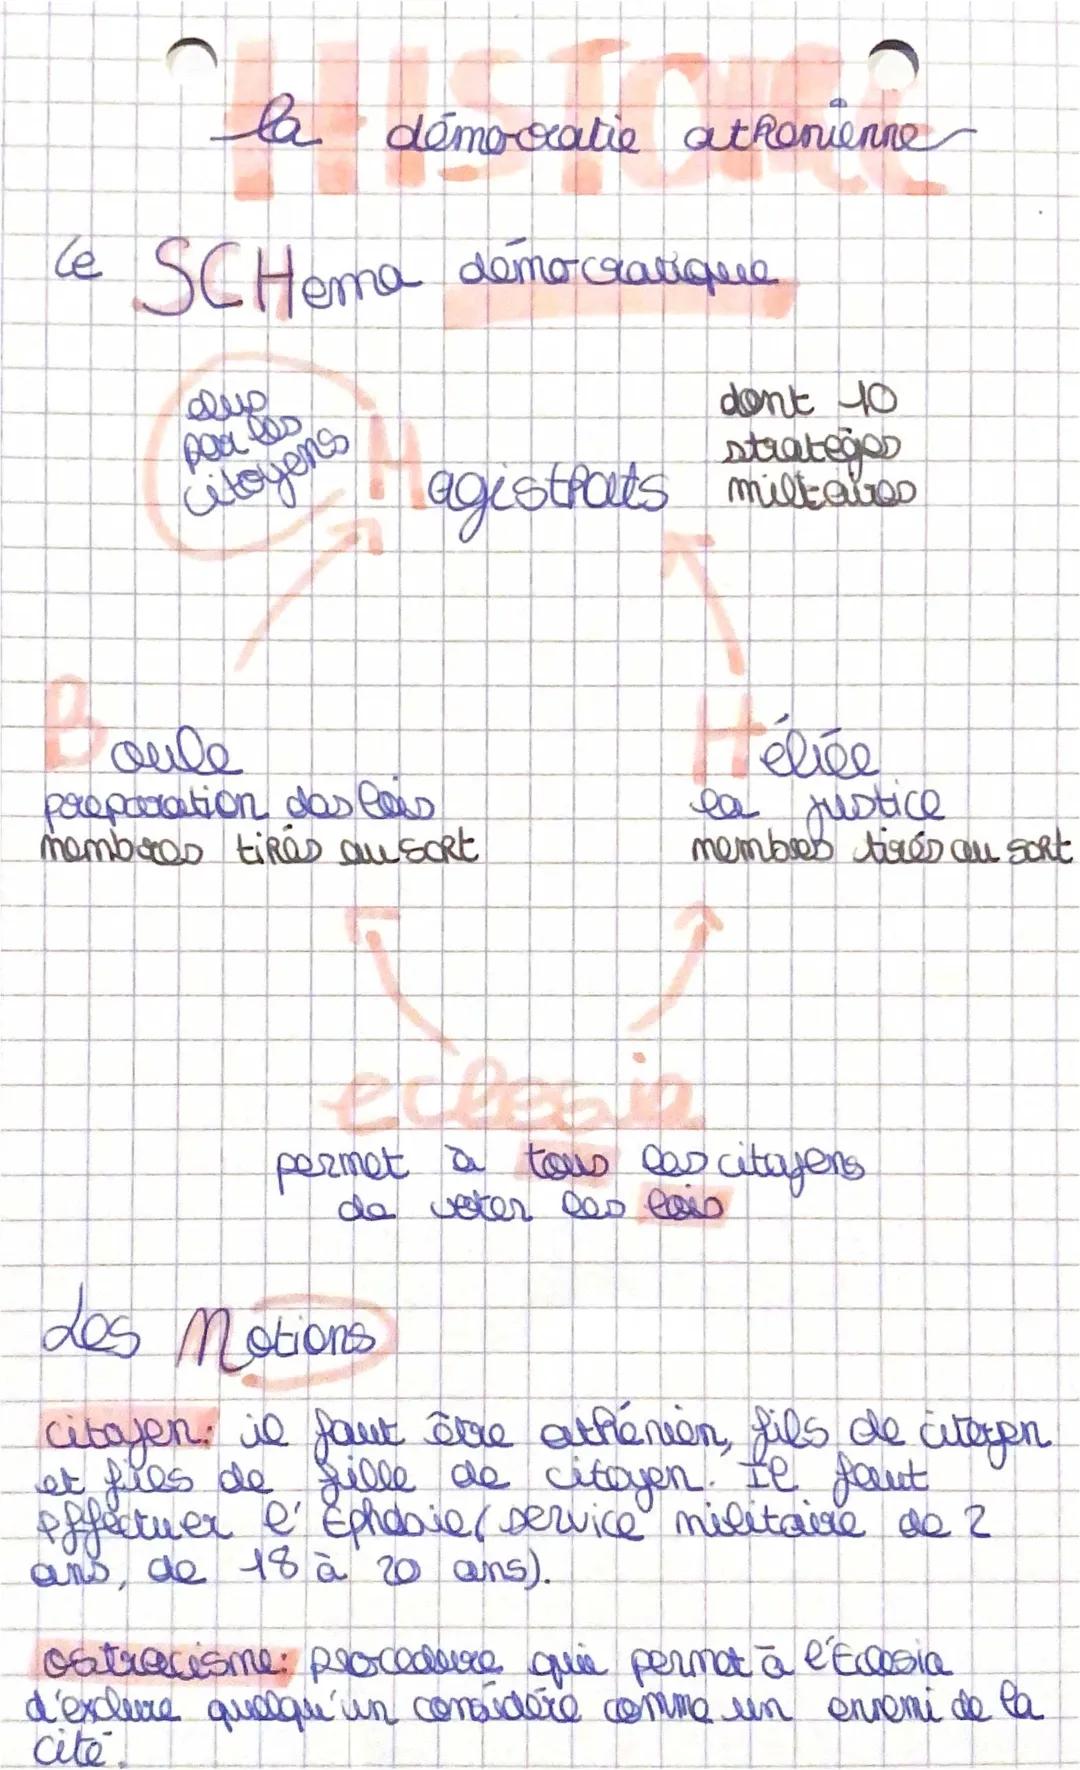 HISTOIRE
la démocratie athénienne
le SCHema démocratique
élus
par les
citoyens
Magistrats
dont 10
stratèges
militaires
Boule
préparation des lois
membres tirés au sort
Héliée
la justice
membres tirés au sort
eclesia
permet à tous les citoyens
de voter les lois
Les Notions
citoyen: il faut être athénien, fils de citoyen
et fils de fille de citoyen. Il faut
effectuer l'Ephébie (service militaire de 2
ans, de 18 à 20 ans).
ostracisme: procédure qui permet à l'Eclesia
d'exclure quelqu'un considéré comme un ennemi de la
cité.